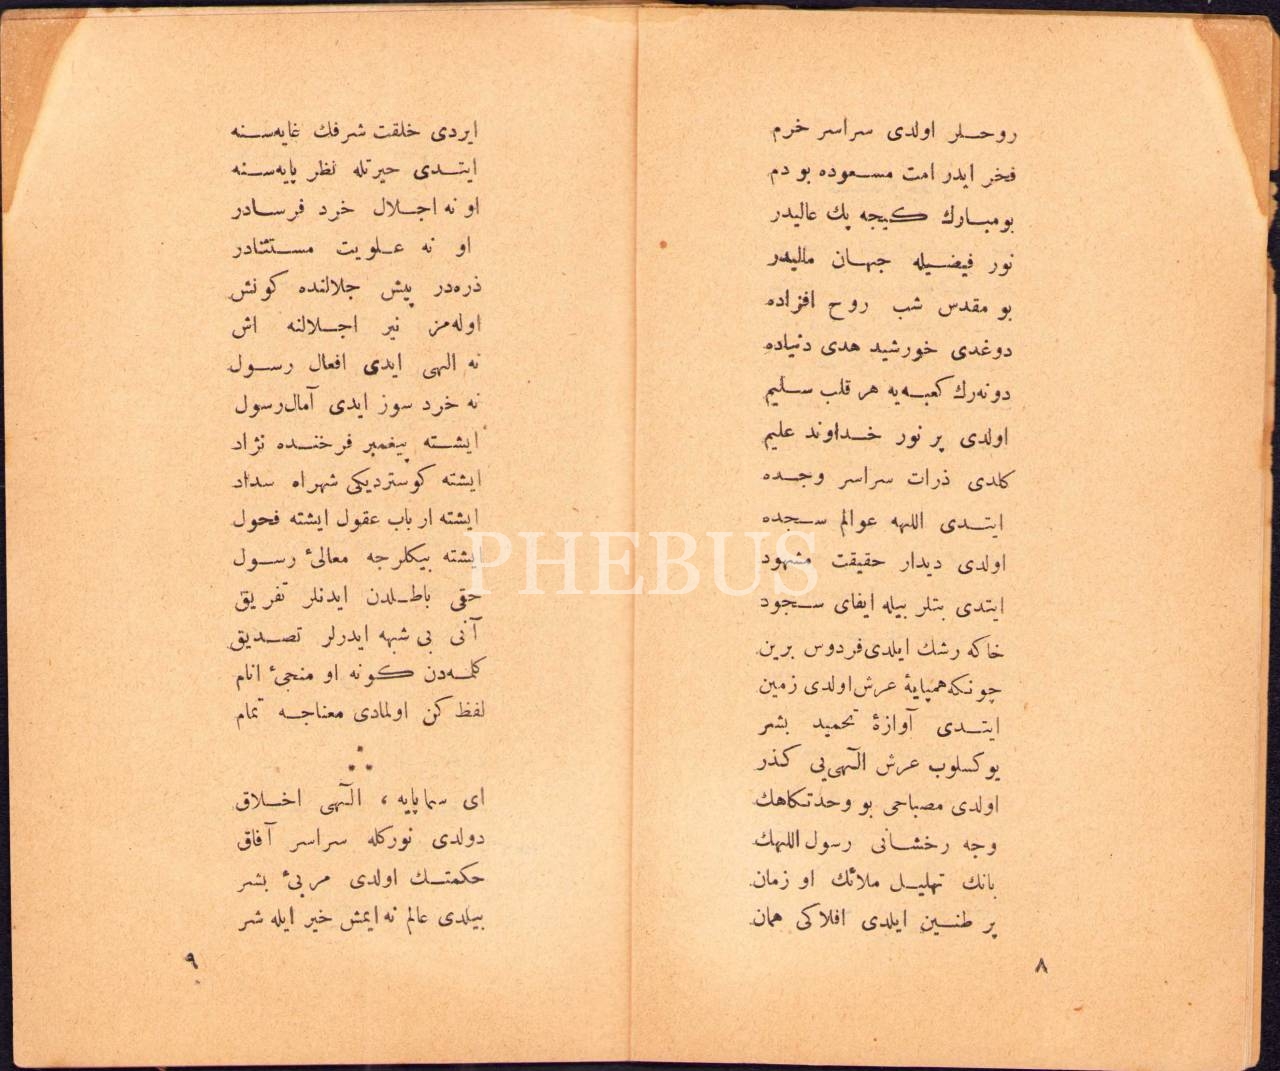 روحلر اولدى سراسر خرم
فخر ايدر امت مسعوده بو دم
بومبارك كيجه پك عاليدر
نور فيضيله جهان ماليدر
بو مقدس شب روح افزاده
دوغدى خورشيد هدى دنياده
دونه‌رك كعبه‌يه هر قلب سليم
اولدى پر نور خداوند عليم
كلدى ذرات سراسر وجده
ايتدى اللهه عوالم سجده
اولدى ديدار حقيقت مشهود
ايتدى بتلر بيله ايفاى سجود
خاكه رشك ايلدى فردوس برين
چونكه همپايهٔ عرش اولدى زمين
ايتدى آوازهٔ تحميد بشر
يوكسلوب عرش الٓهى‌يى كذر
اولدى مصباحى بو وحدتكاهك
وجه رخشانى رسول اللهك
بانك تهليل ملائك او زمان
پر طنين ايلدى افلاكى همان
٨
ايردى خلقت شرفك غايه‌سنه
ايتدى حيرتله نظر پايه‌سنه
او نه اجلال خرد فرسادر
او نه علويت مستثنادر
ذره‌در پيش جلالنده كونش
اوله‌مز نير اجلالنه اش
نه الهى ايدى افعال رسول
نه خرد سوز ايدى آمال رسول
ايشته پيغمبر فرخنده نژاد
ايشته كوستردیكى شهراه سداد
ايشته ارباب عقول ايشته فحول
ايشته بيكلرجه معالئ رسول
حقى باطلدن ايدنلر تفريق
آنى بى شبهه ايدرلر تصديق
كلمه‌دن كونه او منجئ انام
لفظ كن اولمادى معناجه تمام
* * *
اى سماپايه ، الٓهى اخلاق
دولدى نوركله سراسر آفاق
حكمتك اولدى مربئ بشر
بيلدى عالم نه ايمش خير ايله شر
٩
PHEBUS